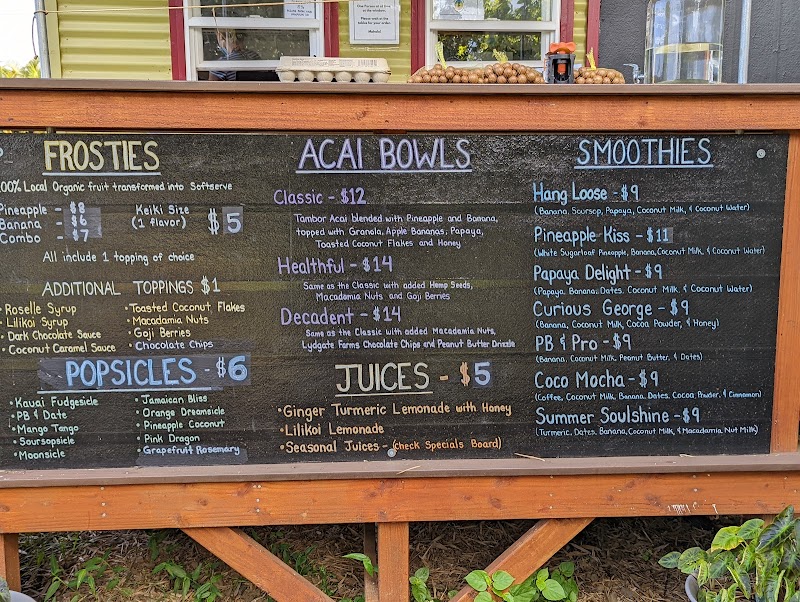 One Person at a time
at the window.
Please wait at the
tables for your order.
Mahalo!
FROSTIES
100% Local Organic fruit transformed into Softserve
Pineapple - $8
Banana - $6
Combo - $7
Keiki Size
(1 flavor)
$5
All include 1 topping of choice
ADDITIONAL TOPPINGS $1
• Roselle Syrup
• Lilikoi Syrup
• Dark Chocolate Sauce
• Coconut Caramel Sauce
• Toasted Coconut Flakes
• Macadamia Nuts
• Goji Berries
• Chocolate Chips
POPSICLES - $6
• Kauai Fudgesicle
• PB & Date
• Mango Tango
• Soursopsicle
• Moonsicle
• Jamaican Bliss
• Orange Dreamsicle
• Pineapple Coconut
• Pink Dragon
• Grapefruit Rosemary
ACAI BOWLS
Classic - $12
Tambor Acai blended with Pineapple and Banana,
topped with Granola, Apple Bananas, Papaya,
Toasted Coconut Flakes and Honey
Healthful - $14
Same as the Classic with added Hemp Seeds,
Macadamia Nuts and Goji Berries
Decadent - $14
Same as the Classic with added Macadamia Nuts,
Lydgate Farms Chocolate Chips and Peanut Butter Drizzle
JUICES - $5
• Ginger Turmeric Lemonade with Honey
• Lilikoi Lemonade
• Seasonal Juices - (Check Specials Board)
SMOOTHIES
Hang Loose - $9
(Banana, Soursop, Papaya, Coconut Milk, & Coconut Water)
Pineapple Kiss - $11
(White Sugarloaf Pineapple, Banana, Coconut Milk, & Coconut Water)
Papaya Delight - $9
(Papaya, Banana, Dates, Coconut Milk, & Coconut Water)
Curious George - $9
(Banana, Coconut Milk, Cocoa Powder, & Honey)
PB & Pro - $9
(Banana, Coconut Milk, Peanut Butter, & Dates)
Coco Mocha - $9
(Coffee, Coconut Milk, Banana, Dates, Cocoa Powder, & Cinnamon)
Summer Soulshine - $9
(Turmeric, Dates, Banana, Coconut Milk, & Macadamia Nut Milk)